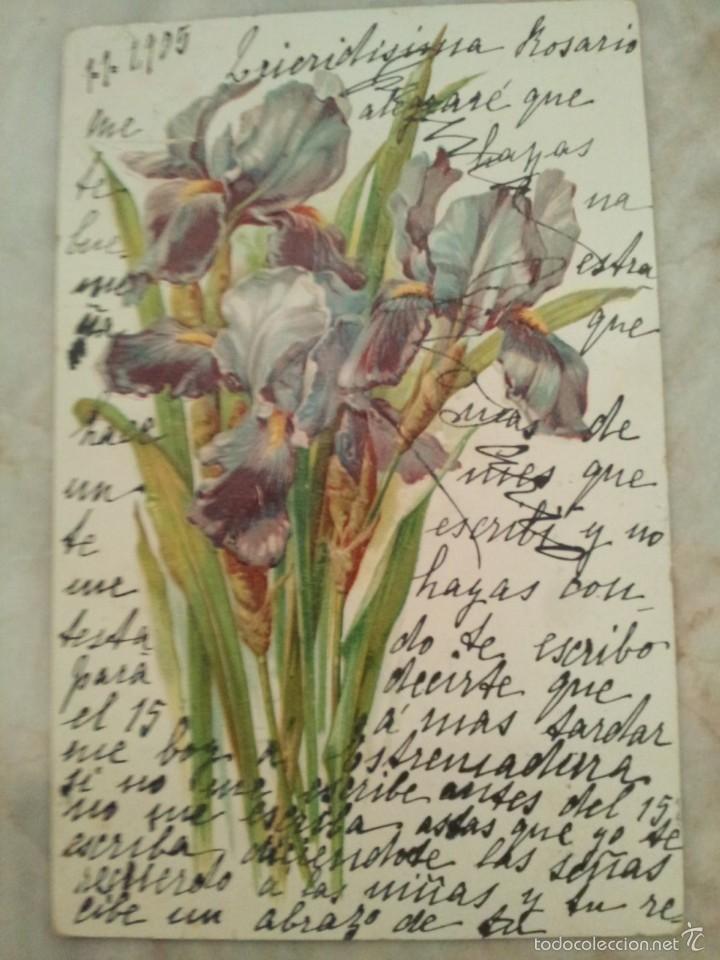 1-1-1905 Queridisima Rosario
me alegraré que
te hayas
bue na
me estra
ña que
hace mas de
un mes que
te escribi y no
me hayas con
testa do te escribo
para decirte que
el 15 á mas tardar
me boy a Estremadura
si no me escribe antes del 15
no me escriba astas que yo te
escriba diciendote las señas
recuerdo a las niñas y tu re-
cibe un abrazo de tu
todocoleccion.net